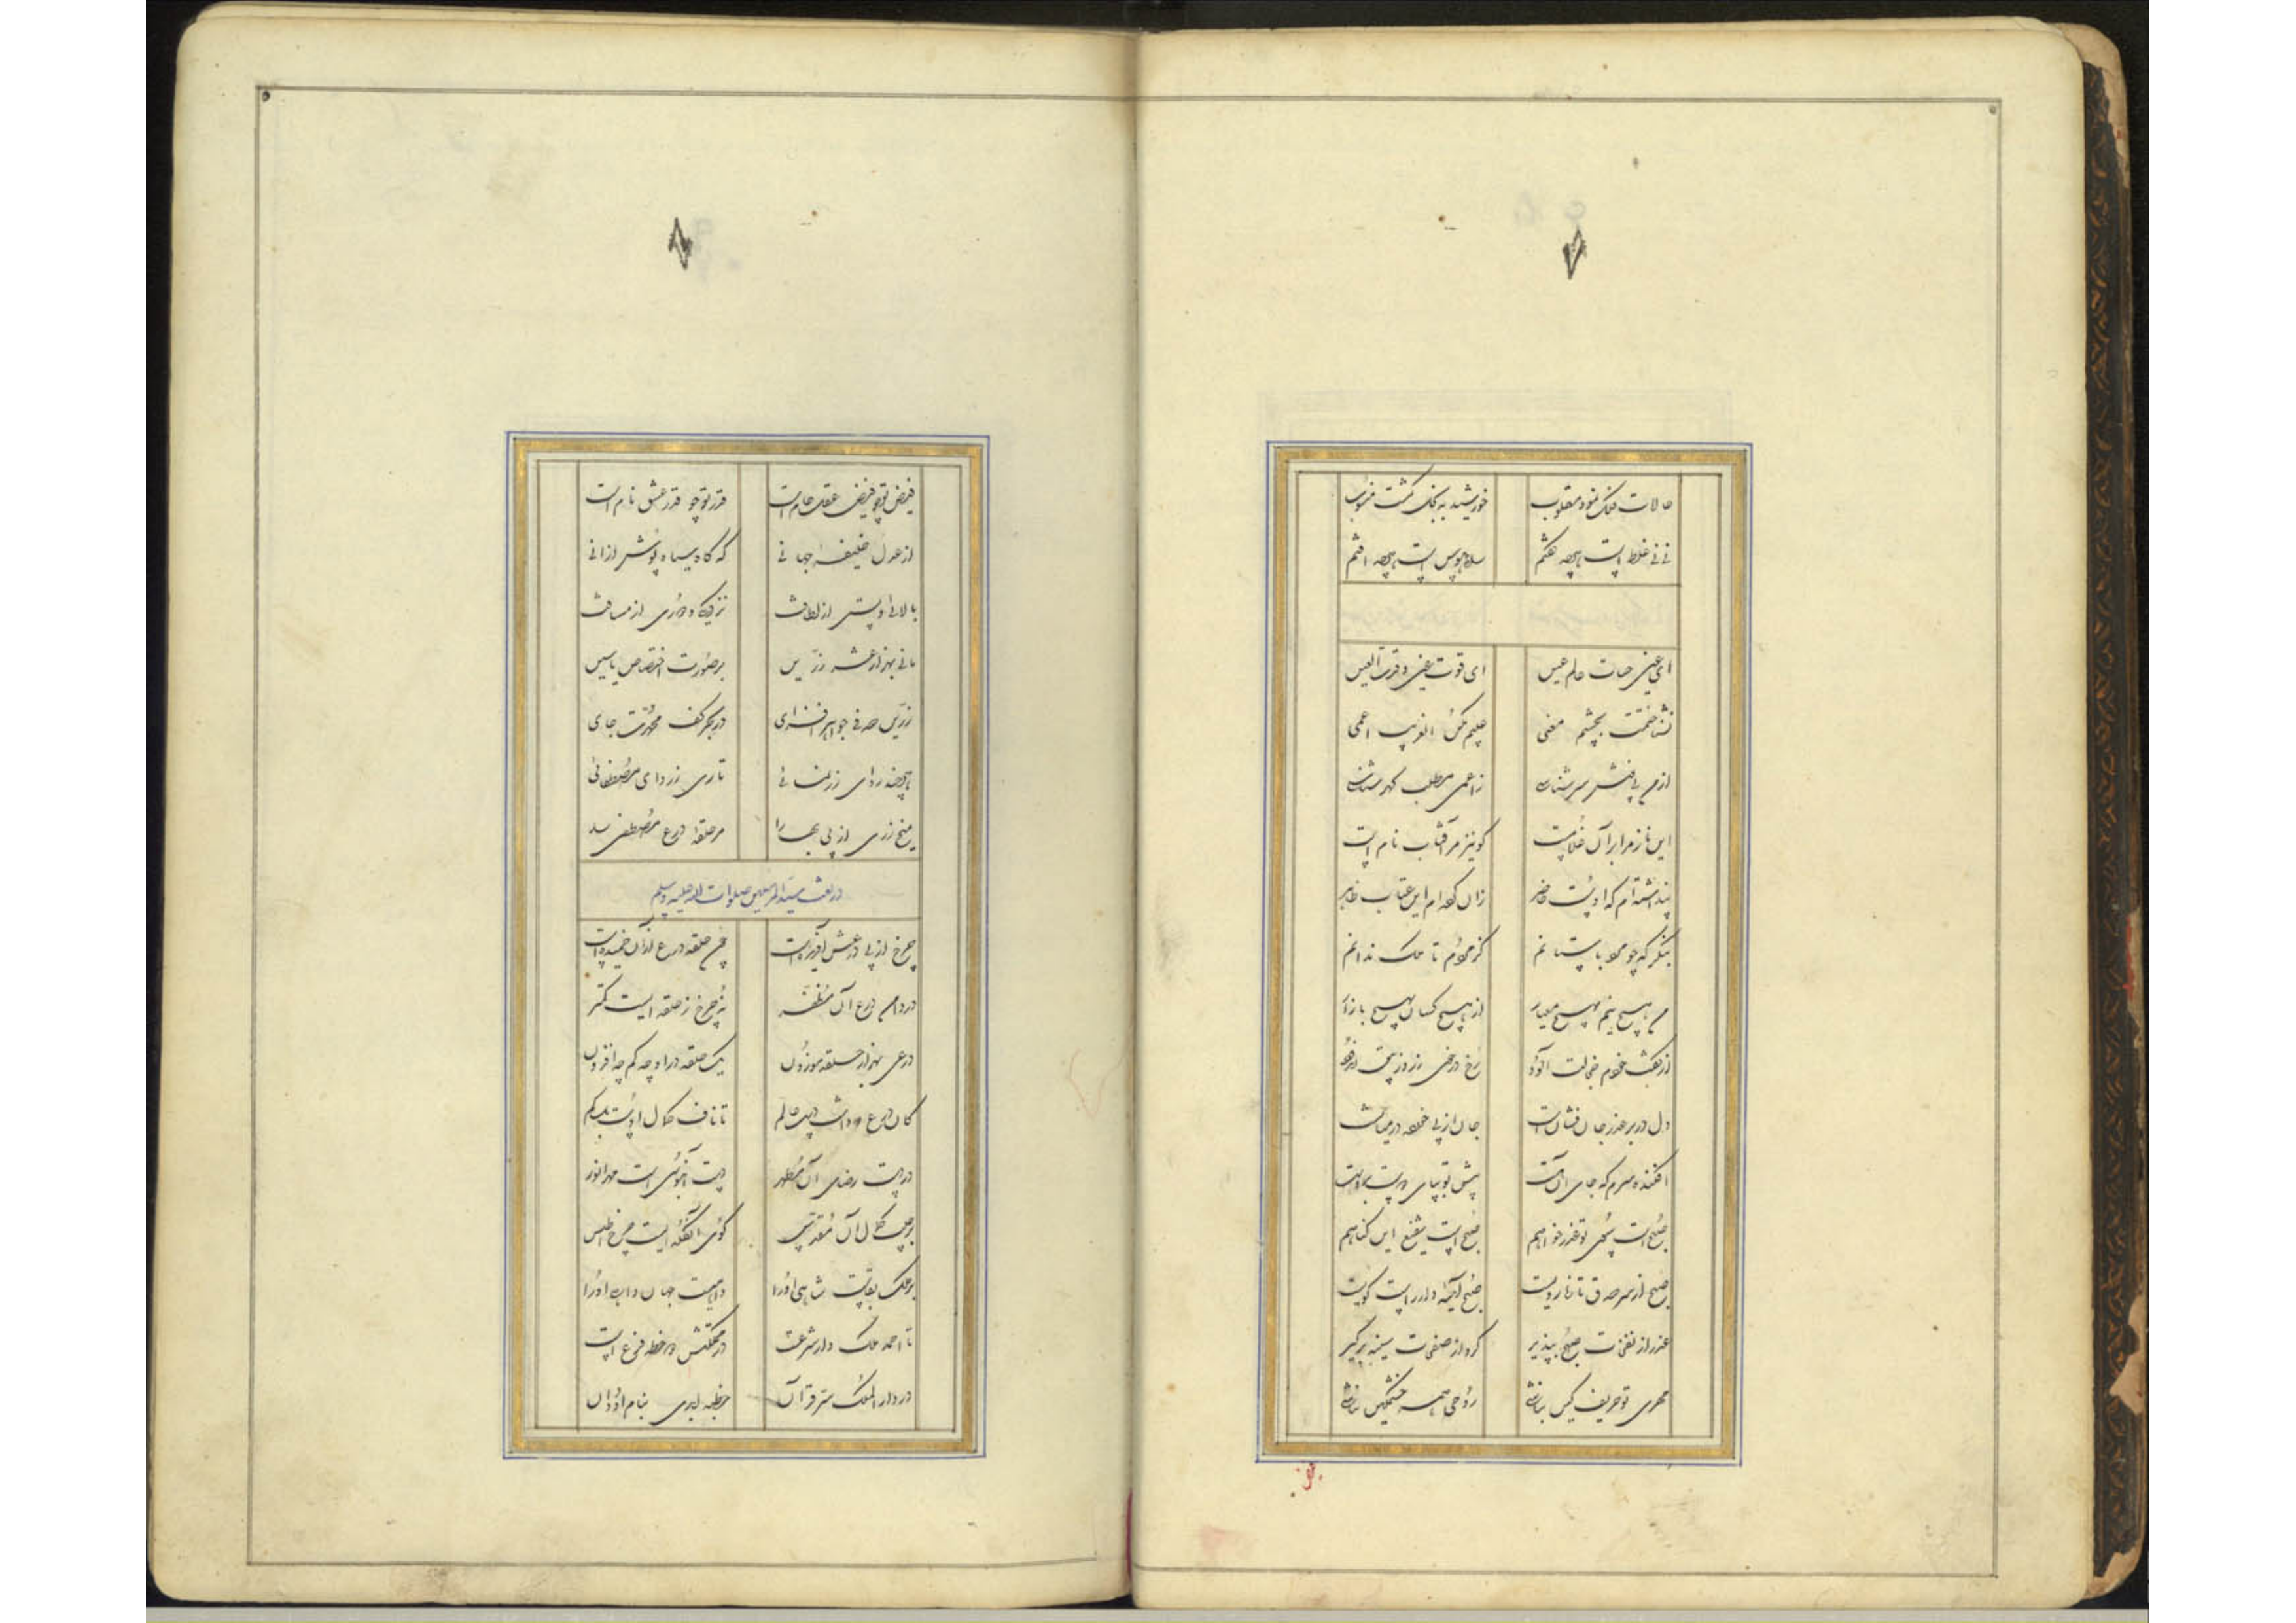 حالات فلک نمود مقلوب خورشید به بخل گشت منسوب
نی نی غلط است هرچه گفتم سالوس است هرچه
ای عین حیات عالم عین ای قوت عین و قرت العین
نشناختمت بچشم معنی چکنم الغریب اعمی
از من سرشناسی ز اعمی مطلب گهرشناسی
این ناز مرا بر آن کو نیز مرا آفتاب نام است
پنداشته‌ام که اوست حاضر زان کرده‌ام این عتاب ظاهر
بنگر که چو محو باستانم کز محوم تا ملک ندانم
من هیچ نیم بهیچ میازار از هیچ کسان بهیچ بازار
از گفت خودم خجلت آلود رخ
دل در بر عذر جان فشان است جان از پی در میان است
افکنده سرم که جای آنست پیش تو بپای
صبح است بسوی تو عذر خواهم صبح است شفیع این گناهم
صبح از سر صدق تازه رویست صبح آینه‌دار راست گویست
عذر از نفحات صبح بپذیر گرد از صفحات سینه برگیر
مهری تو حریف کین نباشی روحی همه خشمگین نباشی
فیض تو چو فیض عقل عام است قدر تو چو قدر عشق نام است
از عدل خلیفهٔ جهانی که گاه سیاه پوش از آنی
بالائی و پستی از لطافت نزدیکی و دوری از مسافت
مانی بهزار عشر زرین بر صورت اختصاص یاسین
زرین صدفی جواهر افزای در بحر کف محمدت جای
هرچند ردای زر نمائی تاری ز ردای مصطفائی
میخ زری از پی بها را مر حلقهٔ درع مصطفی را
در نعت سید المرسلین صلوات الله علیه و سلم
چرخ از پی درعش آفریده است خم حلقه درع از آن خمیده است
در دامن درع آن مظفر نه چرخ ز حلقه ایست کمتر
درعی بهزار حلقه موزون یک حلقه در او چه کم چه افزون
کان درع که داشت پشت عالم تا ناف کمال اوست محکم
در دست رضای آن مطهر دست آبنوسی است مهر انور
بر جیب کمال آن مقدس گوی انگله ایست چرخ اطلس
بر ملک بقاست شاهی او را داهیست جهان داهی او را
تا احمد ملک دار شرعست در مملکتش دو خطه فرع است
در دار الملک سر قرآن خطبه ابدی بنام او دان